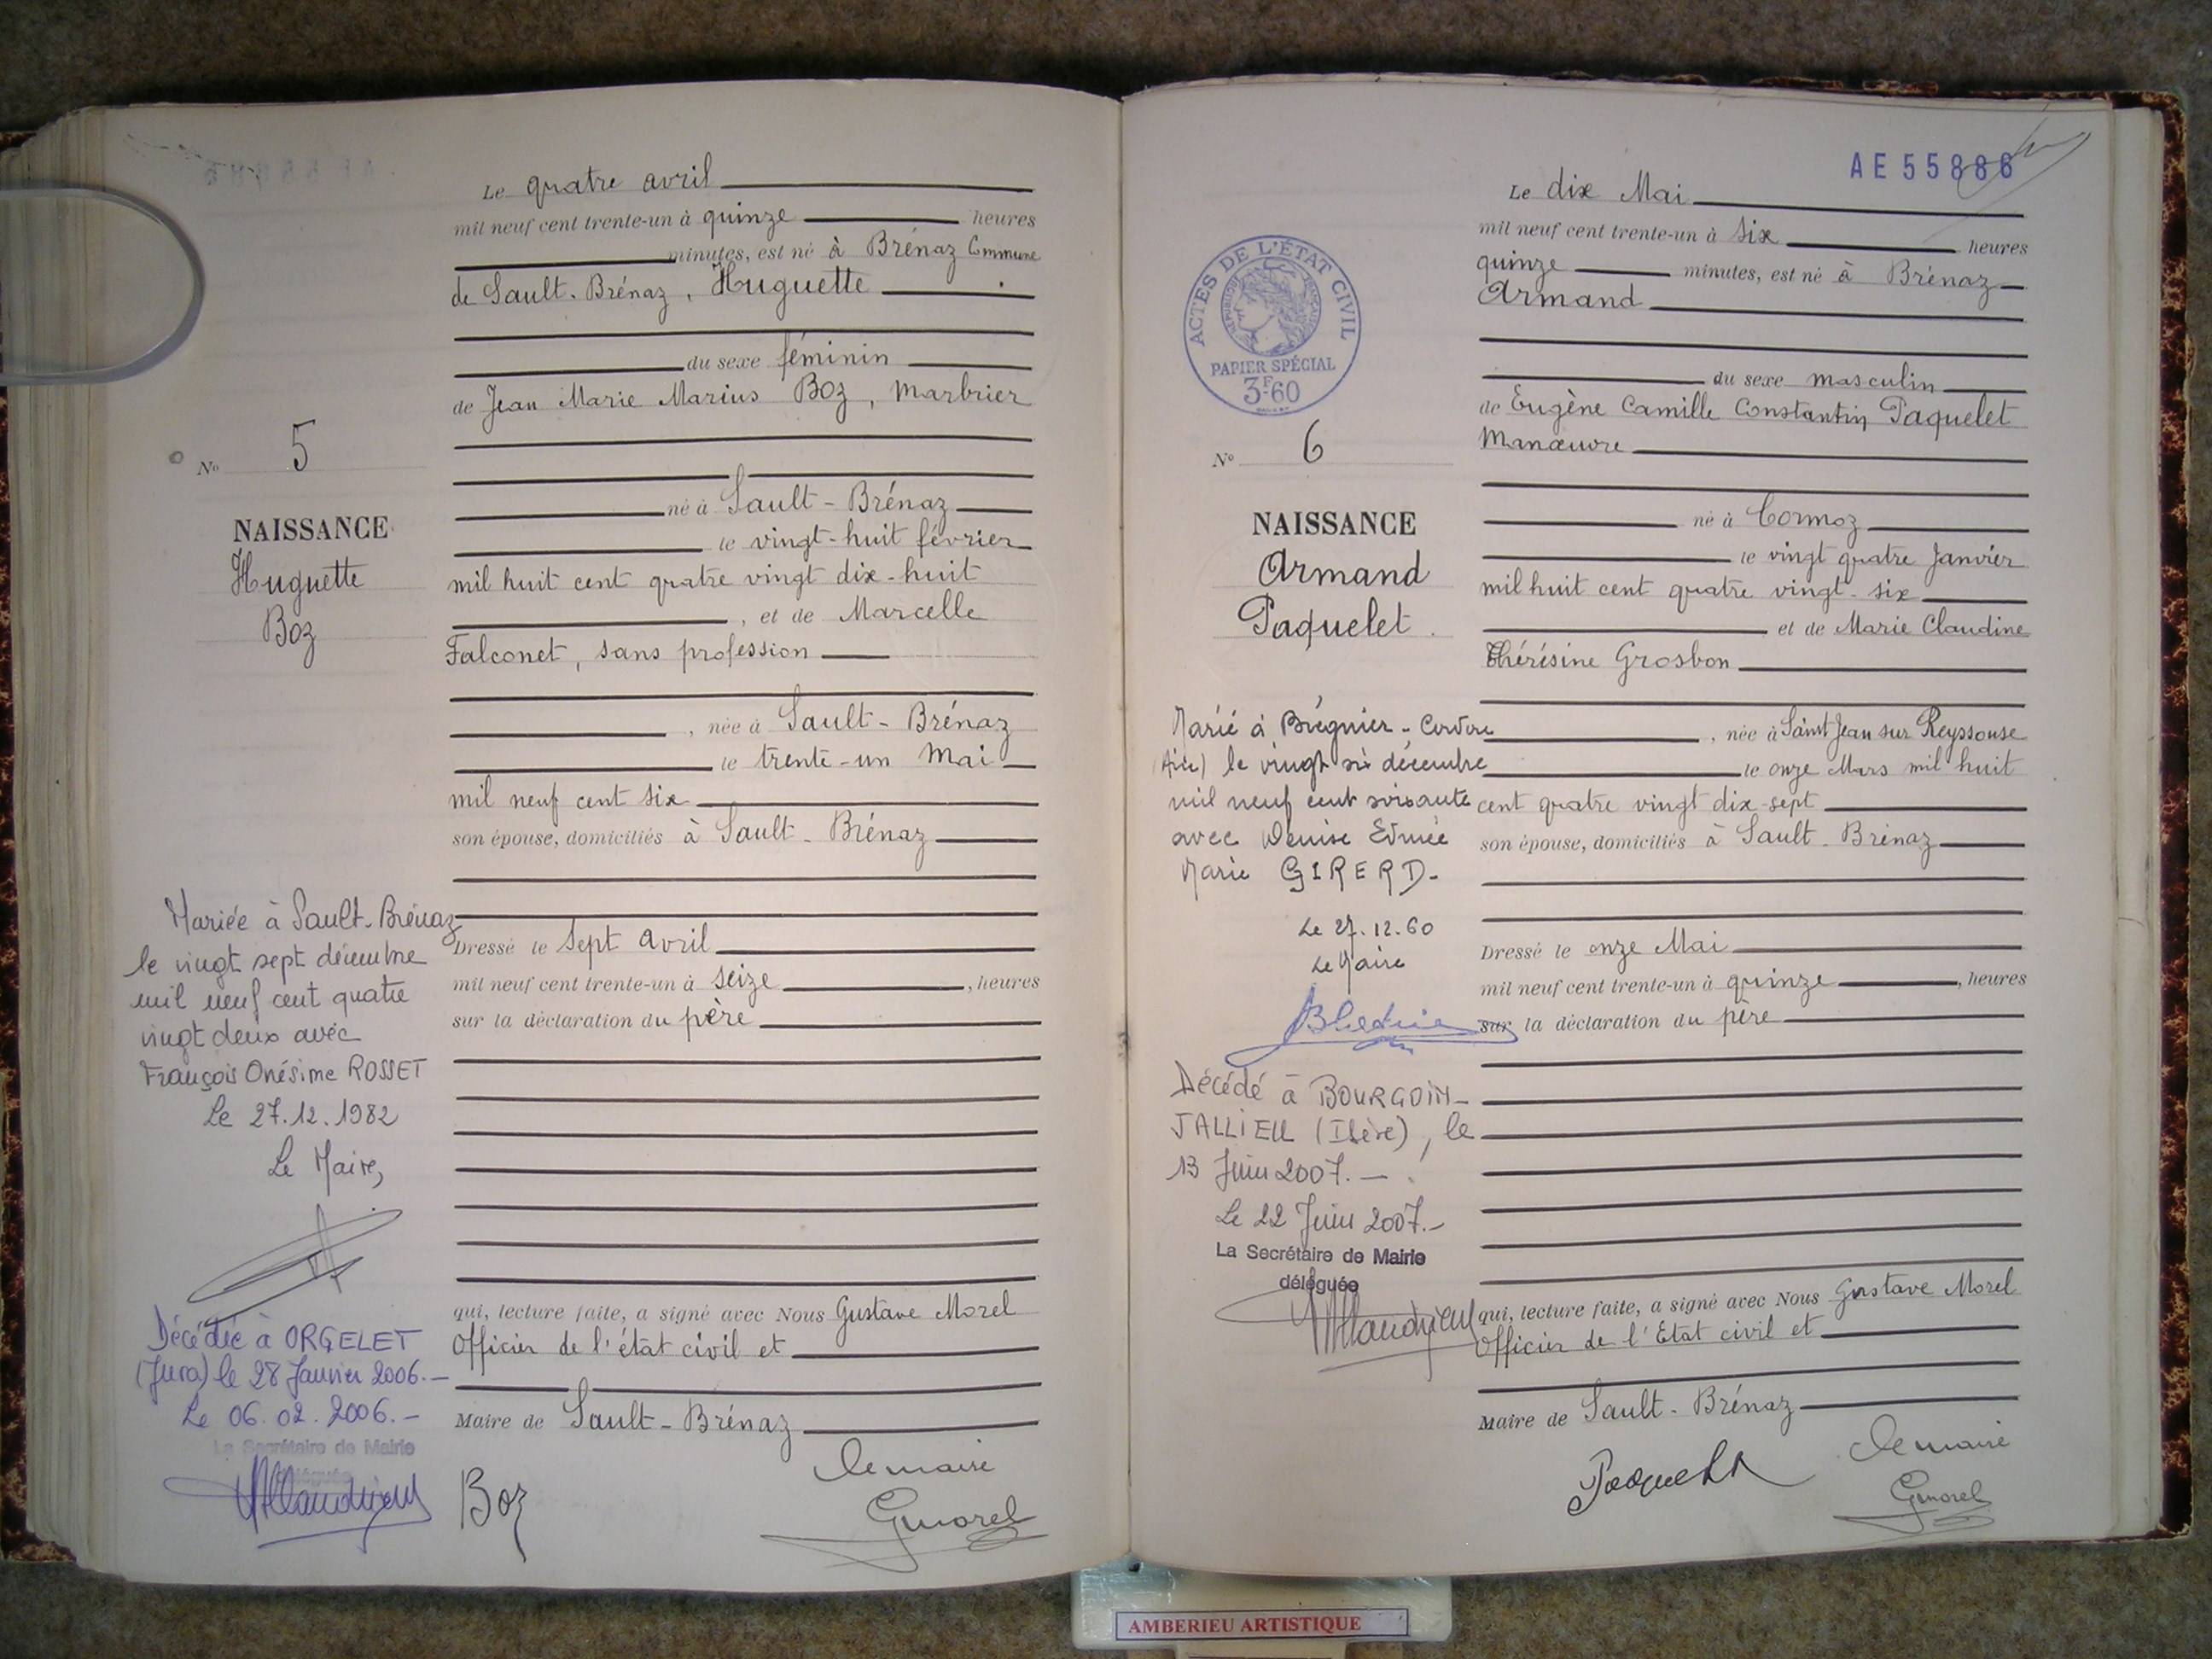 Le quatre avril
mil neuf cent trente-un à quinze heures
minutes, est né à Brénaz Commune
de Sault-Brénaz, Huguette
du sexe féminin
de Jean Marie Marius Boz, Marbrier
né à Sault-Brénaz
le vingt-huit février
mil huit cent quatre vingt dix-huit
, et de Marcelle
Falconet, sans profession
, née à Sault-Brénaz
le trente-un Mai
mil neuf cent six
son épouse, domiciliés à Sault-Brénaz
Dressé le Sept avril
mil neuf cent trente-un à seize, heures
sur la déclaration du père
qui, lecture faite, a signé avec Nous Gustave Morel
Officier de l'état civil et
Maire de Sault-Brénaz
Boz
Le maire
Gmorel
No 5
NAISSANCE
Huguette
Boz
Mariée à Sault-Brénaz
le vingt sept décembre
mil neuf cent quatre
vingt deux avec
François Onésime ROSSET
Le 27.12.1982
Le Maire,
Décédée à ORGELET
(Jura) le 28 Janvier 2006.-
Le 06.02.2006.-
La Secrétaire de Mairie
déléguée
AE 55886
Le dix Mai
mil neuf cent trente-un à six heures
quinze minutes, est né à Brénaz
Armand
du sexe masculin
de Eugène Camille Constantin Paquelet
Manœuvre
né à Cormoz
le vingt quatre Janvier
mil huit cent quatre vingt-six
et de Marie Claudine
Thérésine Grosbon
, née à Saint Jean sur Reyssouse
le onze Mars mil huit
cent quatre vingt dix-sept
son épouse, domiciliés à Sault-Brénaz
Dressé le onze Mai
mil neuf cent trente-un à quinze, heures
sur la déclaration du père
qui, lecture faite, a signé avec Nous Gustave Morel
Officier de l'Etat civil et
Maire de Sault-Brénaz
Paquelet
Le maire
Gmorel
ACTES DE L'ÉTAT CIVIL
RÉPUBLIQUE FRANÇAISE
PAPIER SPÉCIAL
3F60
No 6
NAISSANCE
Armand
Paquelet
Marié à Brégnier-Cordon
(Ain) le vingt six décembre
mil neuf cent soixante
avec Denise Edmée
Marie GIRERD-
Le 27.12.60
Le Maire
Décédé à BOURGOIN-
JALLIEU (Isère), le
13 Juin 2007.-
Le 22 Juin 2007.-
La Secrétaire de Mairie
déléguée
AMBERIEU ARTISTIQUE